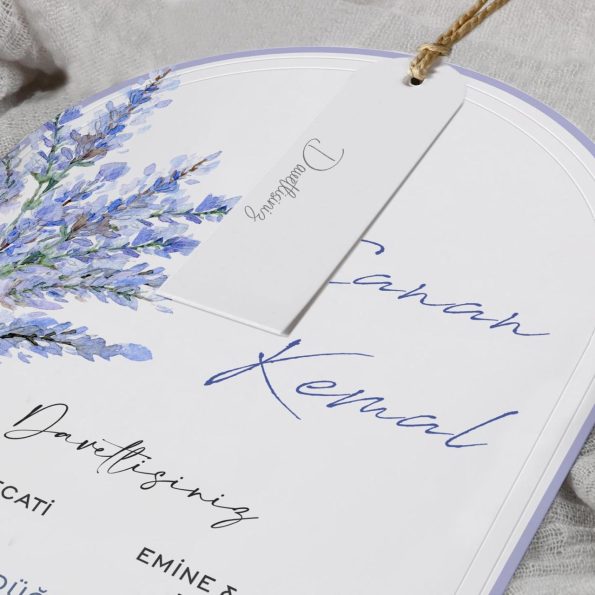 Davetlisiniz
Canan
Kemal
Davetlisiniz
ECATİ
EMİNE &
DÜĞ